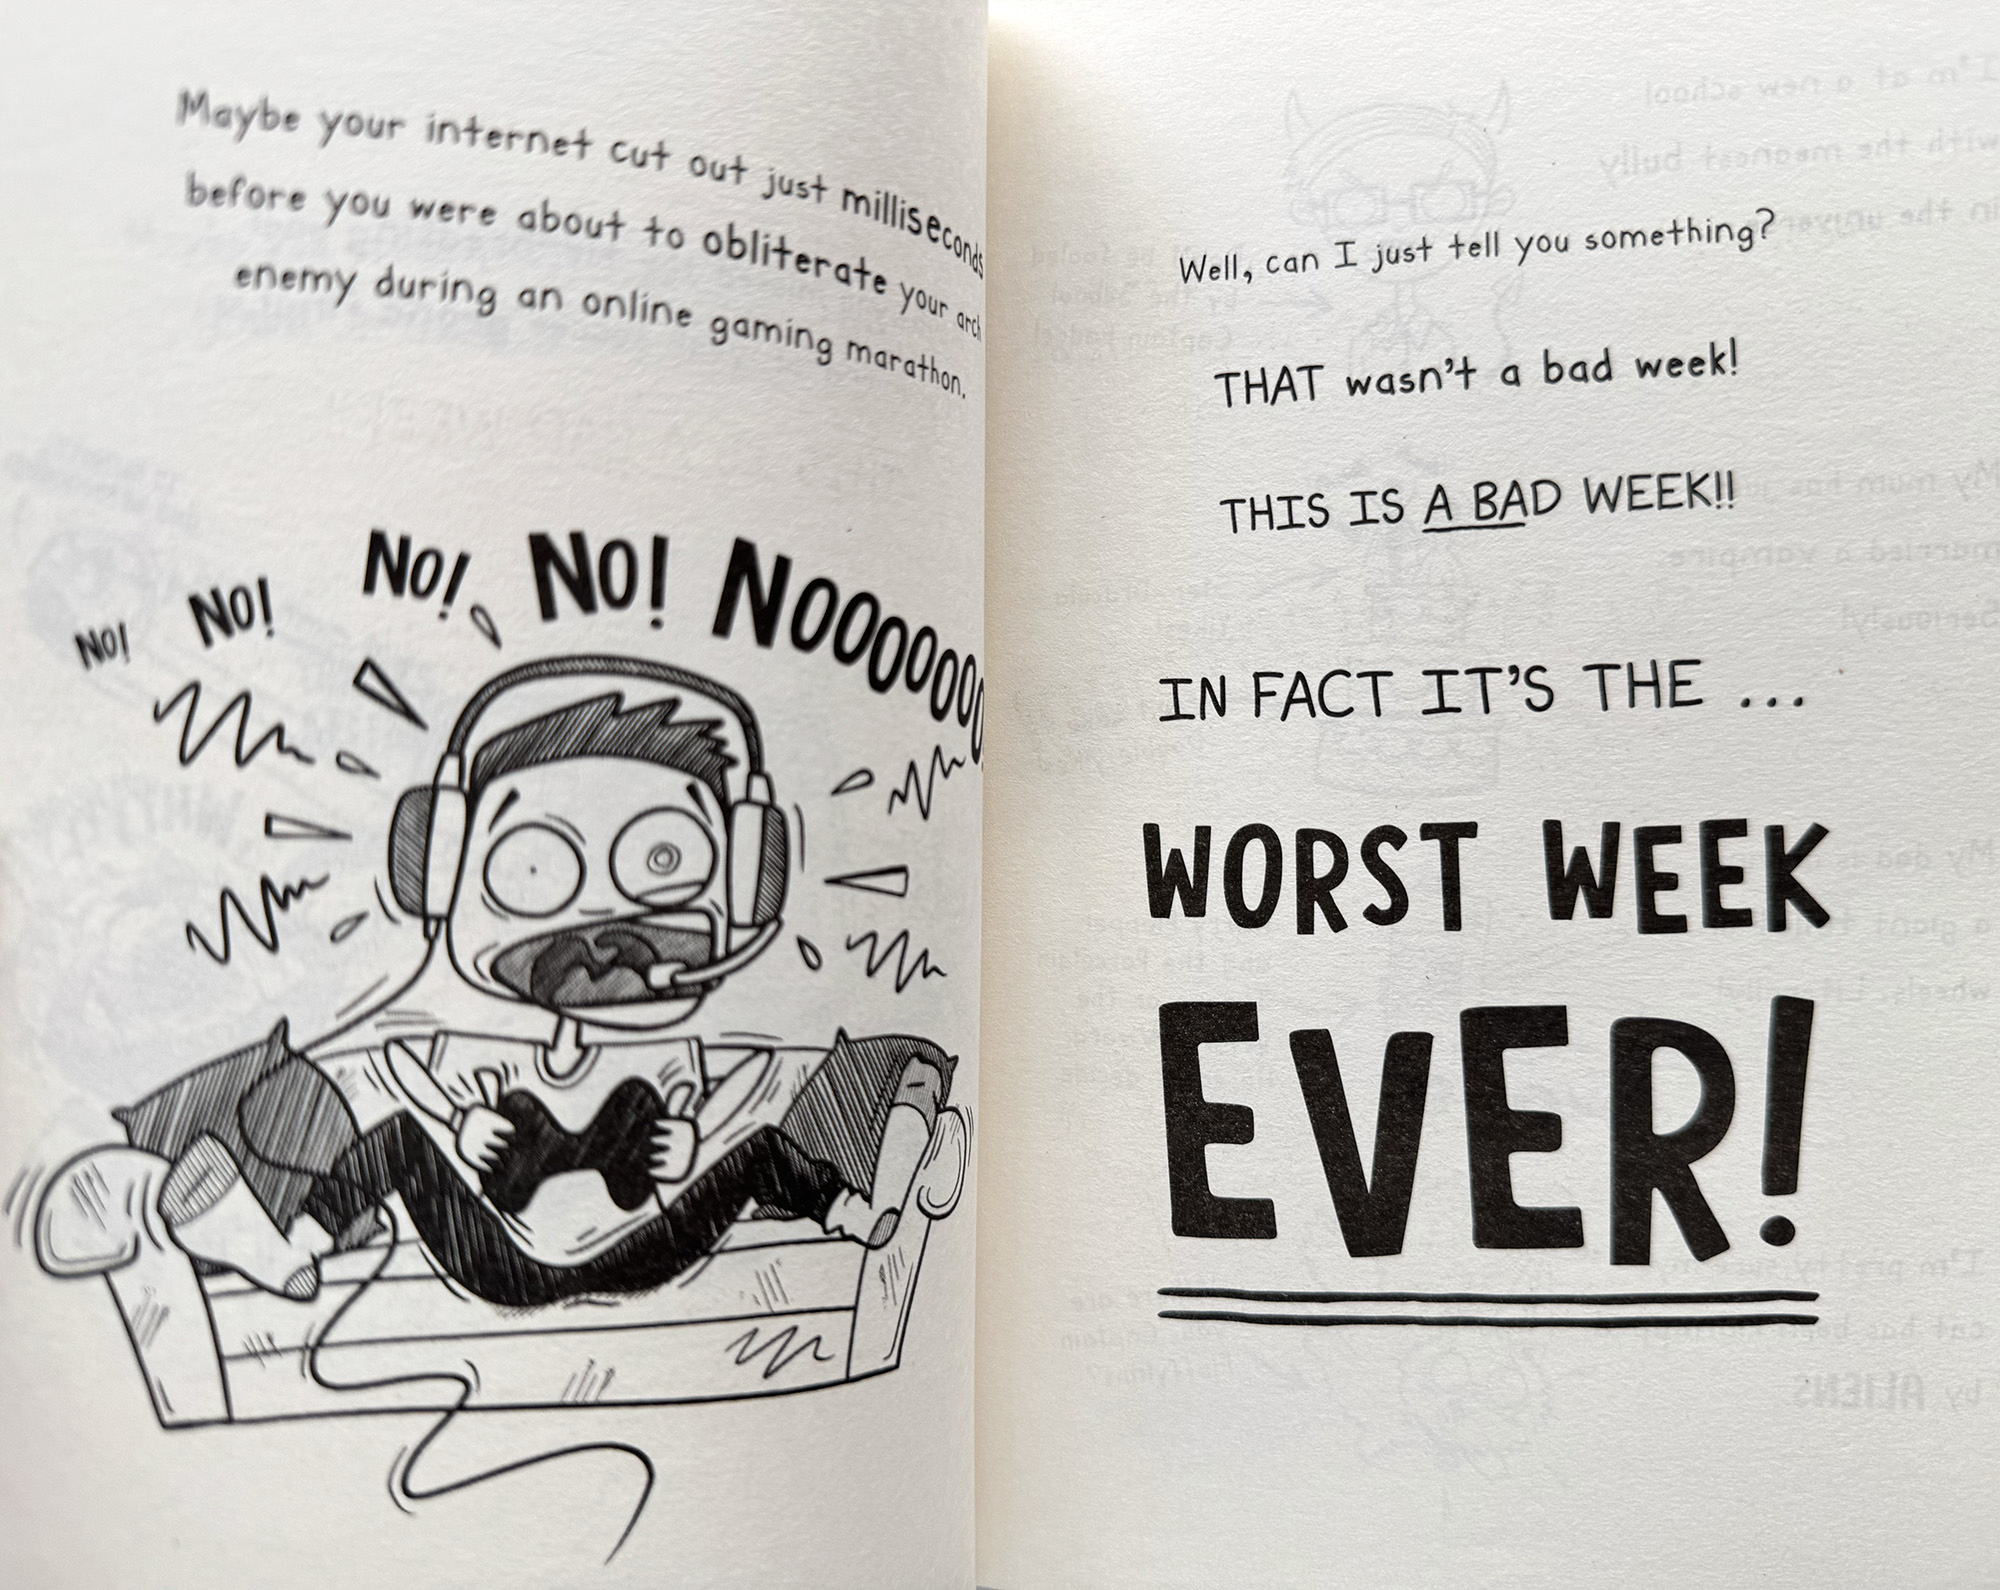 Maybe your internet cut out just milliseconds
before you were about to obliterate your arch
enemy during an online gaming marathon.
NO! NO! NO! NO! NOOOOOOOO
Well, can I just tell you something?
THAT wasn't a bad week!
THIS IS A BAD WEEK!!
IN FACT IT'S THE ...
WORST WEEK
EVER!